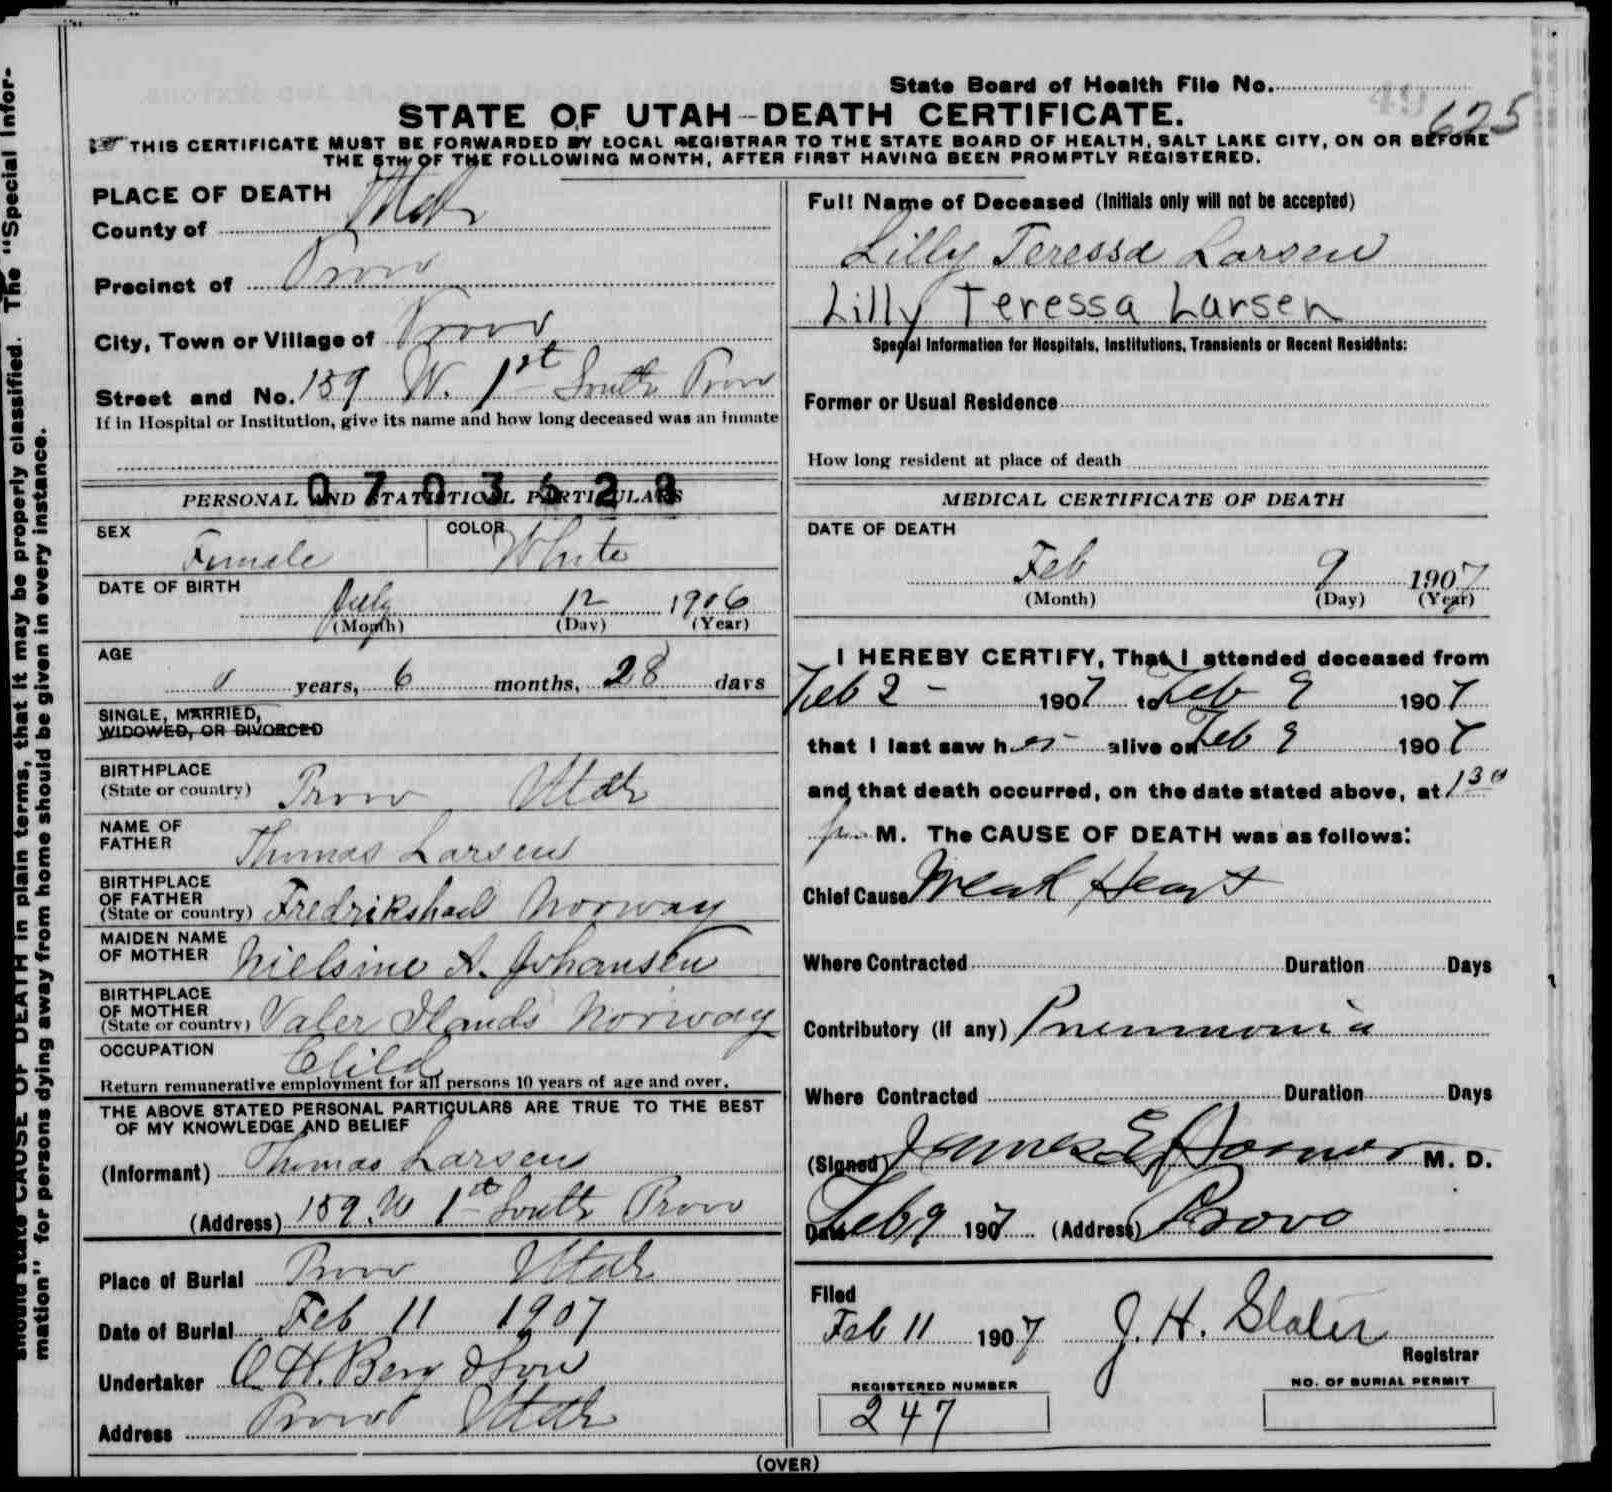 State Board of Health File No.
625
STATE OF UTAH--DEATH CERTIFICATE.
THIS CERTIFICATE MUST BE FORWARDED BY LOCAL REGISTRAR TO THE STATE BOARD OF HEALTH, SALT LAKE CITY, ON OR BEFORE
THE 5TH OF THE FOLLOWING MONTH, AFTER FIRST HAVING BEEN PROMPTLY REGISTERED.
should state CAUSE OF DEATH in plain terms, that it may be properly classified. The "Special Infor-
mation" for persons dying away from home should be given in every instance.
PLACE OF DEATH
County of Utah
Precinct of Provo
City, Town or Village of Provo
Street and No. 159 W. 1st South Provo
If in Hospital or Institution, give its name and how long deceased was an inmate
PERSONAL AND STATISTICAL PARTICULARS
SEX Female COLOR White
DATE OF BIRTH
July 12 1906
(Month) (Day) (Year)
AGE
0 years, 6 months, 28 days
SINGLE, MARRIED,
WIDOWED, OR DIVORCED
BIRTHPLACE
(State or country) Provo Utah
NAME OF
FATHER Thomas Larsen
BIRTHPLACE
OF FATHER
(State or country) Fredrikshald Norway
MAIDEN NAME
OF MOTHER Nielsine A. Johansen
BIRTHPLACE
OF MOTHER
(State or country) Valer Ilands Norway
OCCUPATION Child
Return remunerative employment for all persons 10 years of age and over.
THE ABOVE STATED PERSONAL PARTICULARS ARE TRUE TO THE BEST
OF MY KNOWLEDGE AND BELIEF
(Informant) Thomas Larsen
(Address) 159. W 1st South Provo
Place of Burial Provo Utah
Date of Burial Feb 11 1907
Undertaker O. H. Berg & Son
Address Provo Utah
Full Name of Deceased (Initials only will not be accepted)
Lilly Teressa Larsen
Lilly Teressa Larsen
Special Information for Hospitals, Institutions, Transients or Recent Residents:
Former or Usual Residence
How long resident at place of death
MEDICAL CERTIFICATE OF DEATH
DATE OF DEATH
Feb 9 1907
(Month) (Day) (Year)
I HEREBY CERTIFY, That I attended deceased from
Feb 2 - 1907 to Feb 9 1907
that I last saw her alive on Feb 9 1907
and that death occurred, on the date stated above, at 1 30
p. M. The CAUSE OF DEATH was as follows:
Chief Cause Weak Heart
Where Contracted Duration Days
Contributory (if any) Pneumonia
Where Contracted Duration Days
(Signed) James E M. D.
Date Feb 9 1907 (Address) Provo
Filed
Feb 11 1907 J. H. Slater
Registrar
REGISTERED NUMBER
247
NO. OF BURIAL PERMIT
(OVER)